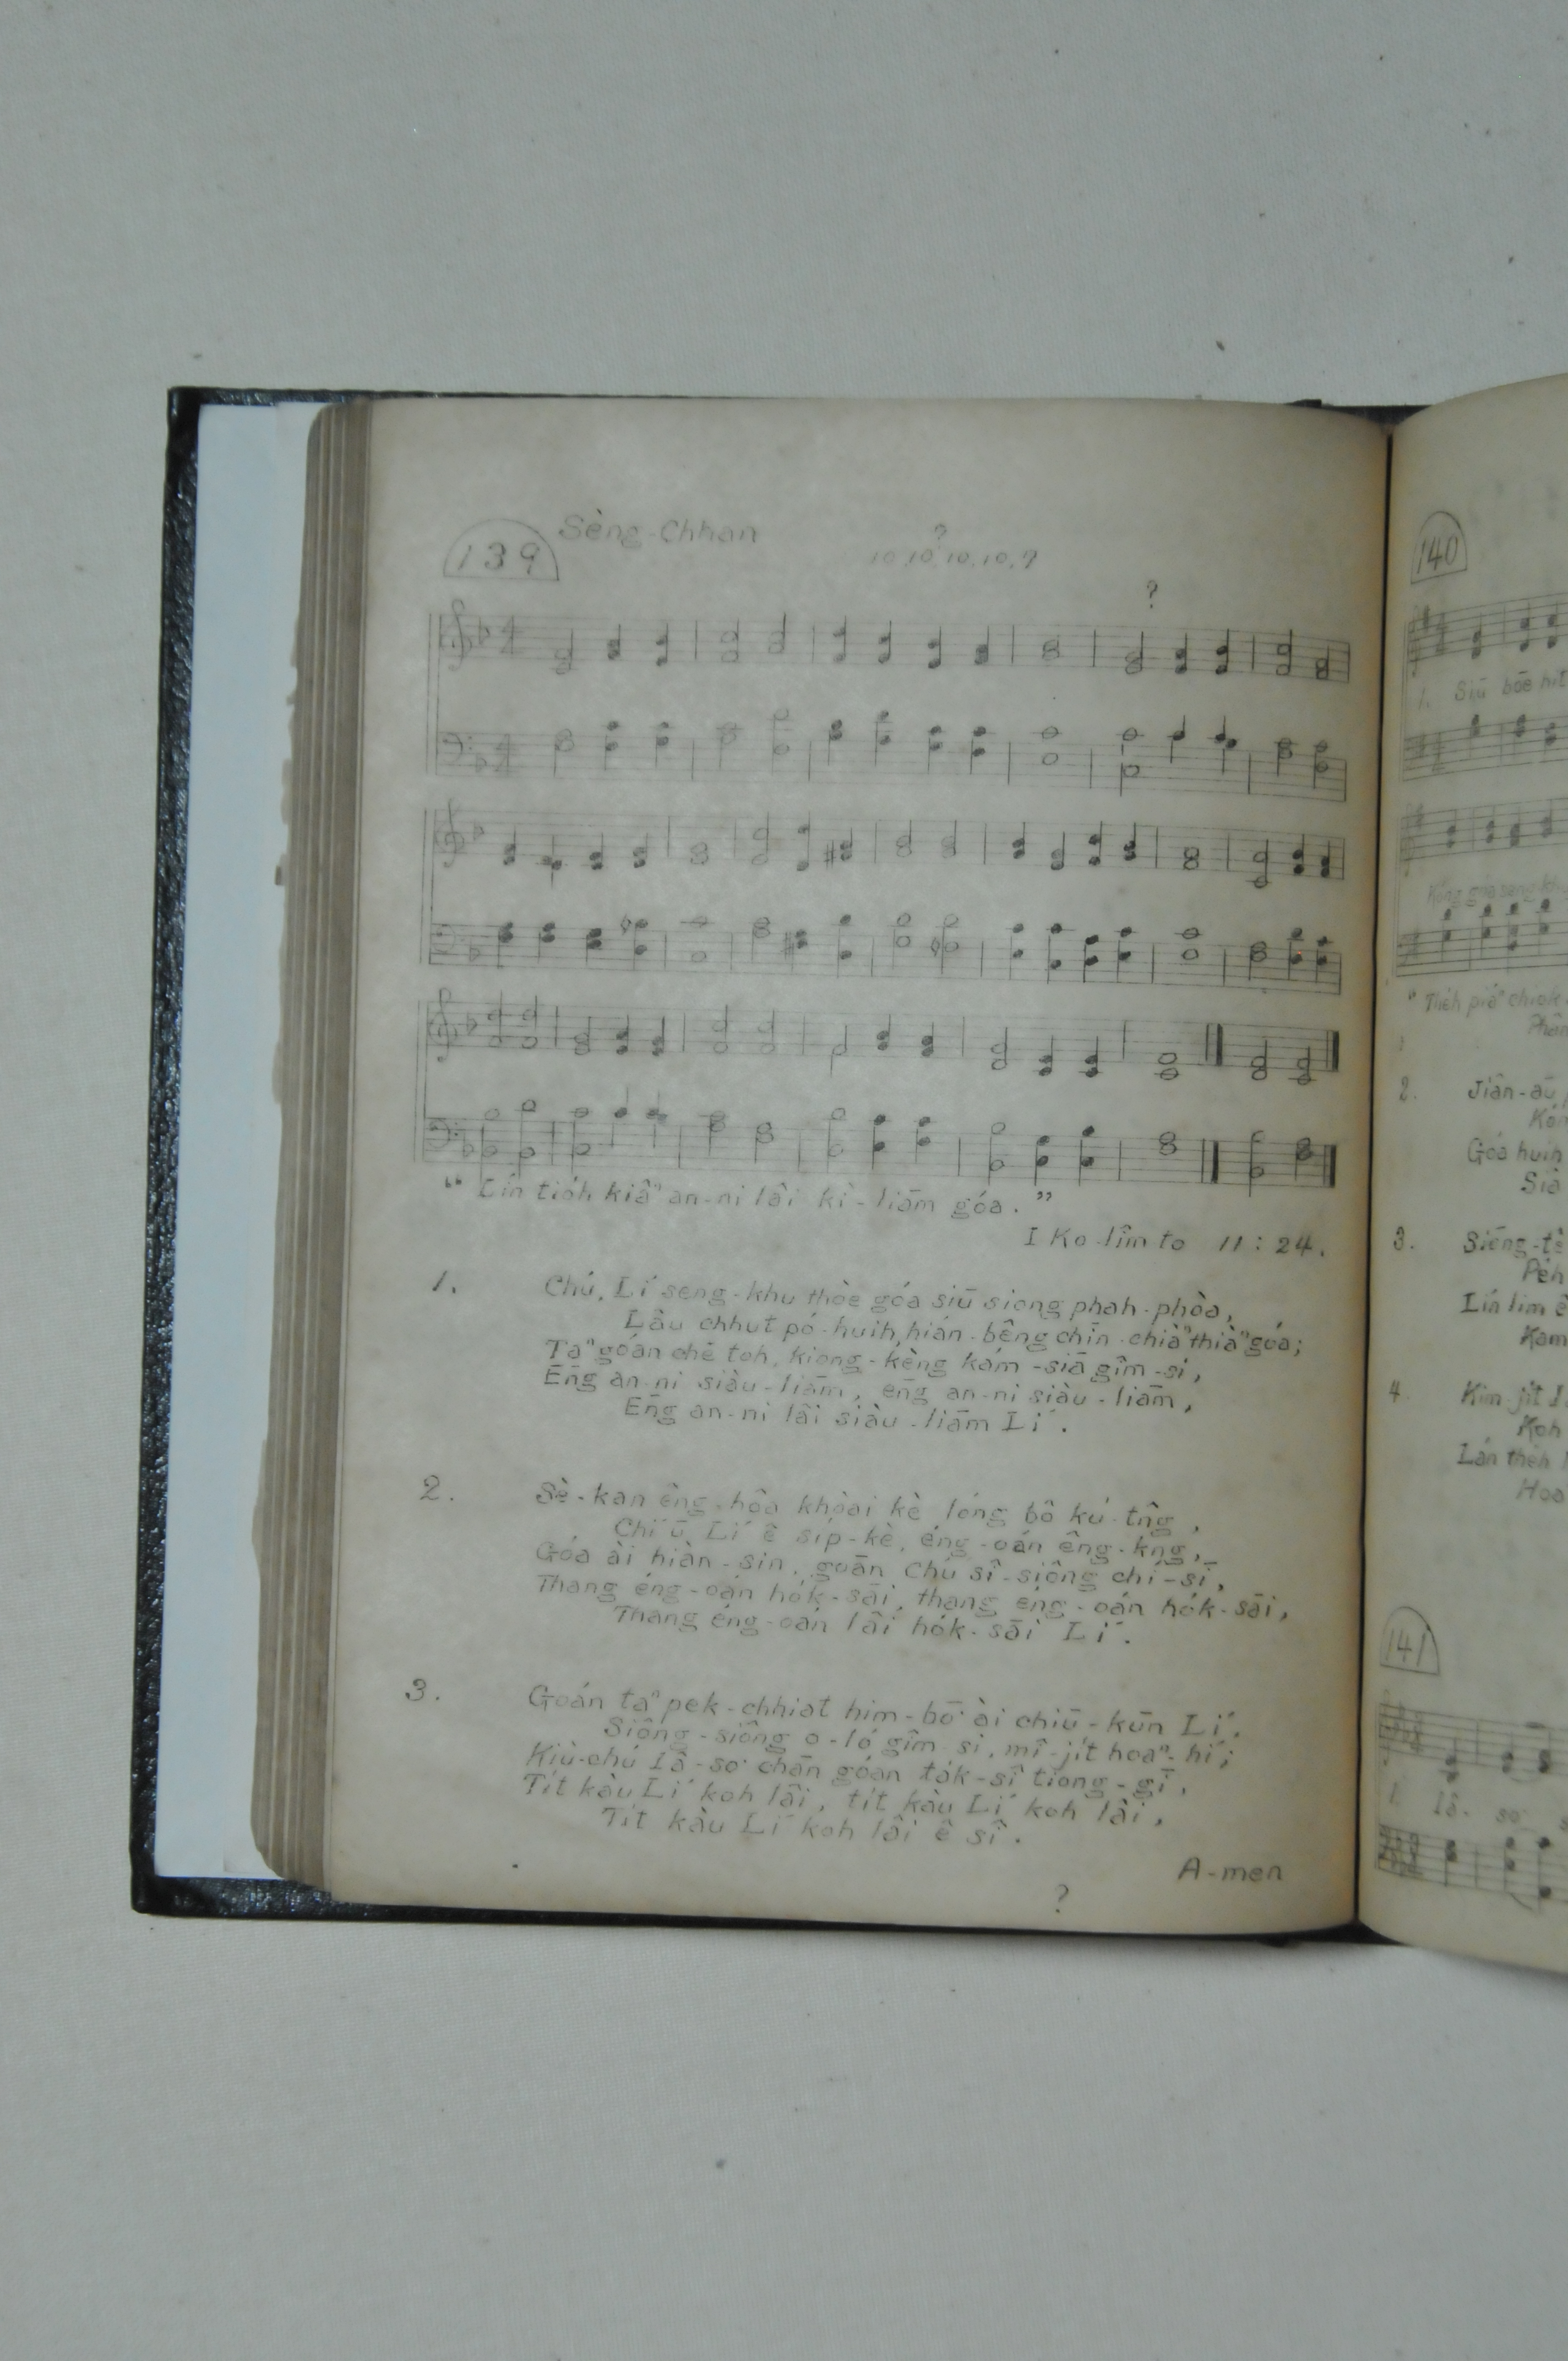 139 Sèng-Chhan
?
10.10.10.10.9
?
“ Lín tio̍h kiâⁿ an-ni lâi kì-liām góa. ”
I Ko-lîm-to 11:24.
1. Chú, Lí seng-khu thòe góa siū siong phah-phòa,
Lâu chhut pó-huih, hián-bêng chīn chiàⁿ thiàⁿ góa;
Taⁿ goán chē toh, kiong-kèng kám-siā gîm-si,
Ēng an-ni siàu-liām, ēng an-ni siàu-liām,
Ēng an-ni lâi siàu-liām Lí.
2. Sè-kan êng-hôa khòai kè, lóng bô kú-tn̂g,
Chí ū Lí ê si̍p-kè, éng-oán êng-kng,
Góa ài hiàn-sin, goān Chú sî-siông chí-sī,
Thang éng-oán ho̍k-sāi, thang éng-oán ho̍k-sāi,
Thang éng-oán lâi ho̍k-sāi Lí.
3. Goán taⁿ pek-chhiat him-bō͘ ài chiū-kūn Lí.
Siông-siông o-ló gîm-si, mî-ji̍t hoaⁿ-hí;
Kiù-chú Iâ-so͘ chān góan ta̍k-sî tiong-gī,
Ti̍t kàu Lí koh lâi, ti̍t kàu Lí koh lâi,
Ti̍t kàu Lí koh lâi ê sî.
A-men
?
140
1. Siū bōe
“ The̍h
2. Jiân-āu
Góa huih
3. Siōng-tè
Pe̍h
Lín lim ê
Kam
4 Kim-ji̍t
Koh
Lán the̍h
Hoa
141
1. Iâ-so͘